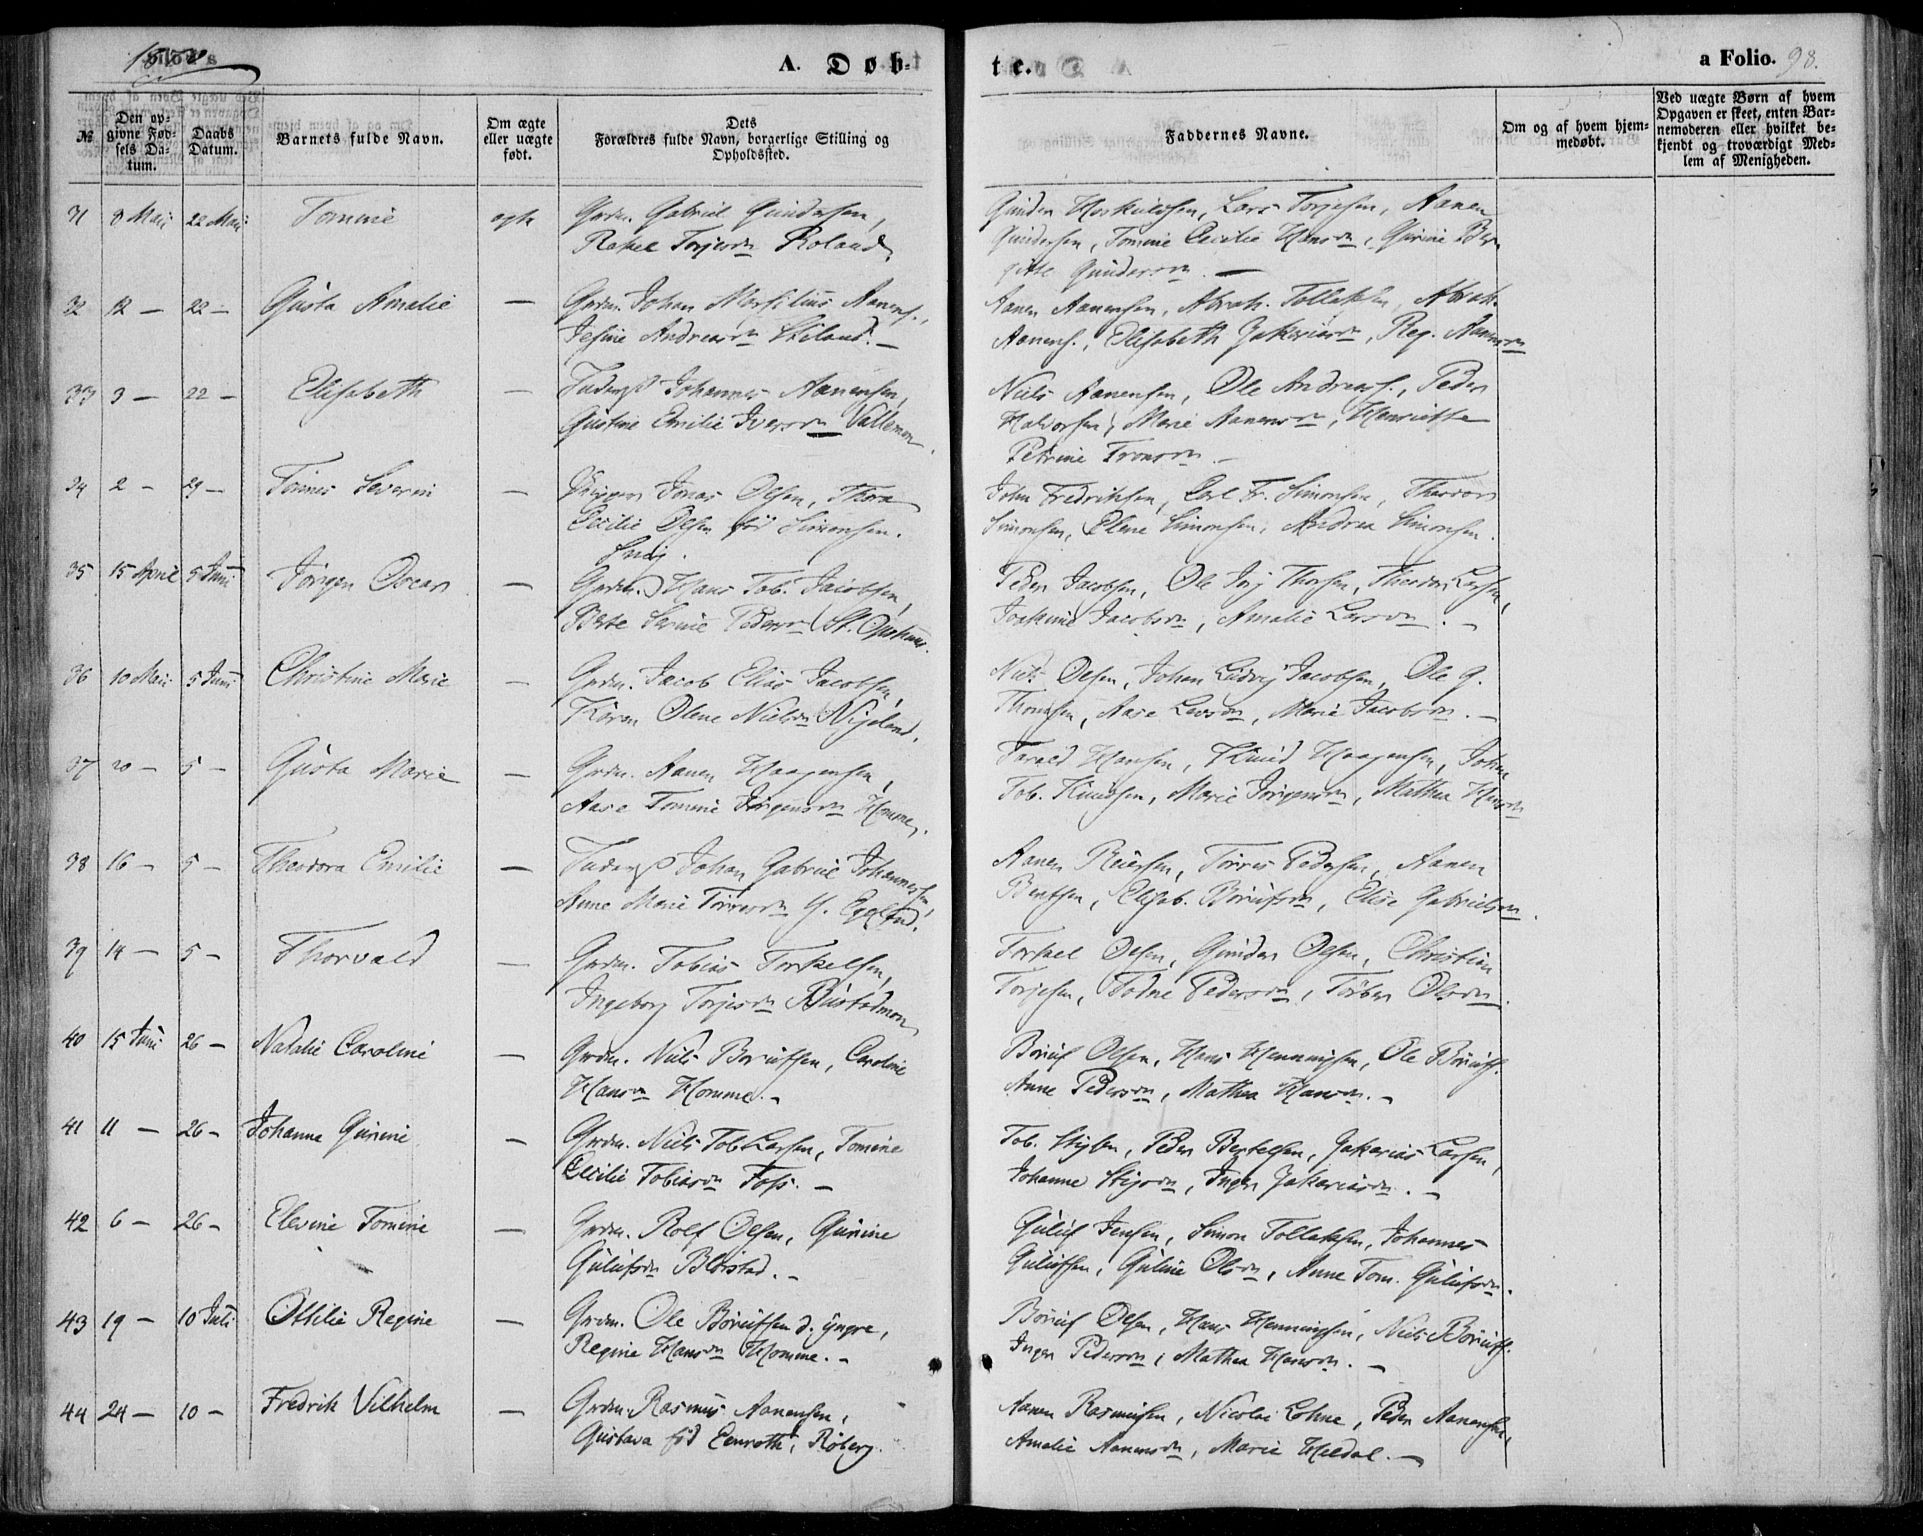 A. Døb-
te.
a Folio. 98.
№
Den op-
givne Fød-
sels Da-
tum.
Daabs
Datum.
Barnets fulde Navn.
Om ægte
eller uægte
født.
Dets
Forældres fulde Navn, borgerlige Stilling og
Opholdssted.
Faddernes Navne.
Om og af hvem hjem-
medøbt.
Ved uægte Børn af hvem
Opgaven er skeet, enten Bar-
nemoderen eller hvilket be-
kjendt og troværdigt Med-
lem af Menigheden.
31 8 Mai 22 Mai Tomine ægte Grdm. Gabriel Gundersen,
Rakel Torjesdn Roland
Gunder Hoskuldsen, Lars Torjesen, Aanen
Gundersen, Tomine Cecilie Hansdn, Gurine Ber
gitte Gundersdn. —
32 12 — 22 — Gusta Amalie — Grdm. Johan Marsilius Aanens.,
Jesine Andreasdn Stiland. —
Aanen Aanensen, Abrah. Tollaksen, Abrah.
Aanens., Elisabeth Zakariasdn, Reg. Aanensdn
33 3 — 22 — Elisabeth — Johannes Aanensen,
Gustine Emilie Iversdn Vallemon.
Niels Aanensen, Ole Andreas., Peder
Halvorsen, Marie Aanensdn, Henriette
Petrine Tronsdn —
34 2 — 29 — Tønnes Severin — Jonas Olsen, Thora
Cecilie Olsen fød Simonsen.
John Fredriksen, Carl Fr. Simonsen, Theodor
Simonsen, Olene Simonsen, Andrea Simonsen.
35 15 April 5 Juni Jørgen Oscar — Grdm. Hans Tob. Jacobsen,
Berte Serine Pedersdn St. Opsahl.
Peder Jacobsen, Ole Jørg Thorsen, Theodor Larsen,
Joakime Jacobsdn, Amalie Larsdn. —
36 10 Mai 5 Juni Christine Marie — Grdm. Jacob Elias Jacobsen,
Karen Olene Nielsdn Nygeland.
Niels Olsen, Johan Ludvig Jacobsen, Ole G.
Thomsen, Aase Larsdn, Marie Jacobsdn. —
37 20 — 5 — Gusta Marie — Grdm. Aanen Haagensen,
Aase Tomine Jørgensdn Homme.
Tarald Hansen, Knud Haagensen, Johan
Tob. Knudsen, Marie Jørgensdn, Mathea Hansdn
38 16 — 5 — Theodora Emilie — Johan Gabriel Johannessen,
Anne Marie Tørresdn Y. Egeland.
Aanen Reiersen, Tørres Pedersen, Aanen
Bentsen, Elisab. Børufsdn, Elise Gabrielsdn.
39 14 — 5 — Thorvald — Grdm. Tobias Torkelsen,
Ingeborg Torjesdn Bustadmon
Torkel Olsen, Gunder Olsen, Christian
Torjesen, Todne Pedersdn, Torbor Olsdn.
40 15 Juni 26 — Natalie Caroline — Grdm. Niels Børufsen, Caroline
Hansdn Homme. —
Børuf Olsen, Hans Henningsen, Ole Børufs.
Anne Pedersdn, Mathea Hansdn. —
41 11 — 26 — Johanne Gurine — Grdm. Niels Tob. Larsen, Tomine
Cecilie Tobiasdn Foss. —
Tob. Stigsen, Peder Bertelsen, Zakarias Larsen,
Johanne Stigsdn, Inger Zakariasdn. —
42 6 — 26 — Elevine Tomine — Grdm. Rolf Olsen, Gurine
Gulufsdn Birkestad. —
Guluf Jensen, Simon Tollaksen, Johannes
Gulufsen, Guline Olsdn, Anne Tom. Gulufsdn.
43 19 — 10 Juli Ottilie Regine — Grdm. Ole Børufsen d. yngre,
Regine Hansdn Homme. —
Børuf Olsen, Hans Henningsen, Niels Børufs.
Inger Pedersdn, Mathea Hansdn. —
44 24 — 10 — Fredrik Vilhelm — Grdm. Rasmus Aanensen,
Gustava fød Eenroth, Røberg.
Aanen Rasmusen, Nicolai Lohne, Peder Aanensen,
Amalie Aanensdn, Marie Hildal. —